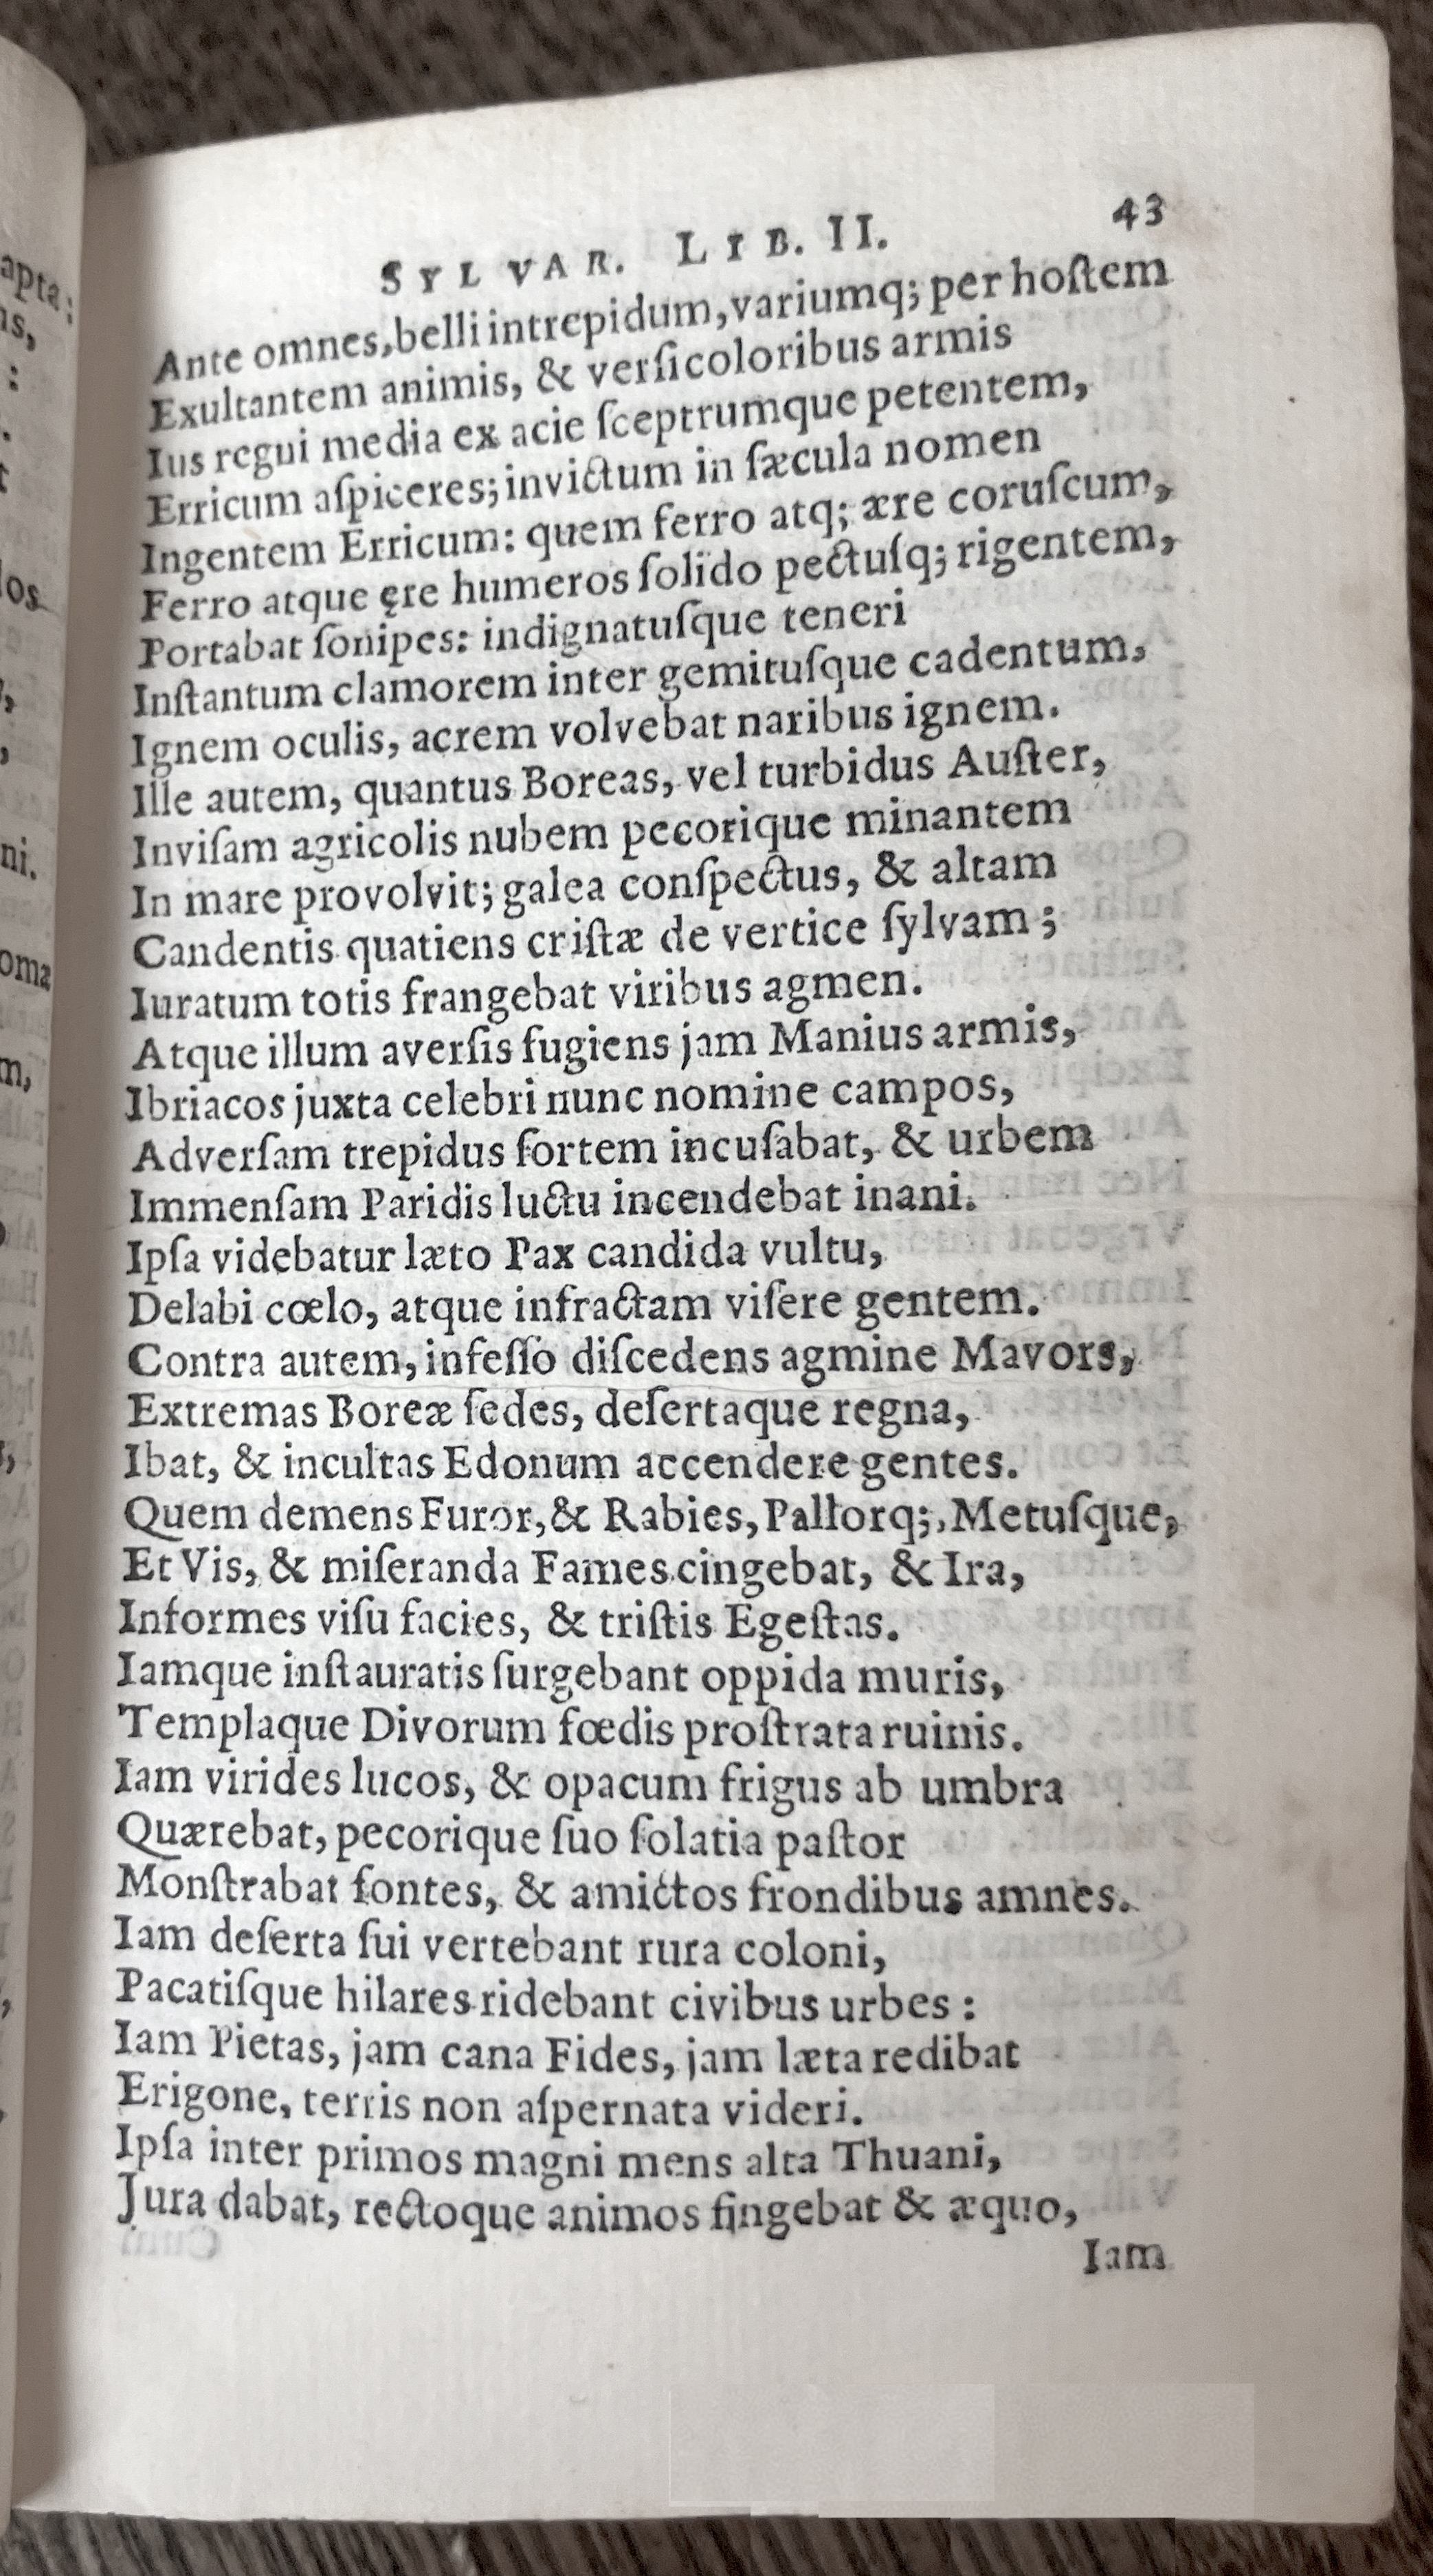 SYLVAR. LIB. II. 43
Ante omnes, belli intrepidum, variumq; per hoſtem
Exultantem animis, & verſicoloribus armis
Ius regni media ex acie ſceptrumque petentem,
Erricum aſpiceres; invictum in ſæcula nomen
Ingentem Erricum: quem ferro atq; ære coruſcum,
Ferro atque ęre humeros ſolido pectuſq; rigentem,
Portabat ſonipes: indignatuſque teneri
Inſtantum clamorem inter gemituſque cadentum,
Ignem oculis, acrem volvebat naribus ignem.
Ille autem, quantus Boreas, vel turbidus Auſter,
Inviſam agricolis nubem pecorique minantem
In mare provolvit; galea conſpectus, & altam
Candentis quatiens criſtæ de vertice ſylvam;
Iuratum totis frangebat viribus agmen.
Atque illum averſis fugiens jam Manius armis,
Ibriacos juxta celebri nunc nomine campos,
Adverſam trepidus ſortem incuſabat, & urbem
Immenſam Paridis luctu incendebat inani.
Ipſa videbatur læto Pax candida vultu,
Delabi cœlo, atque infractam viſere gentem.
Contra autem, infeſſo diſcedens agmine Mavors,
Extremas Boreæ ſedes, deſertaque regna,
Ibat, & incultas Edonum accendere gentes.
Quem demens Furor, & Rabies, Pallorq;, Metuſque,
Et Vis, & miſeranda Fames cingebat, & Ira,
Informes viſu facies, & triſtis Egeſtas.
Iamque inſtauratis ſurgebant oppida muris,
Templaque Divorum fœdis proſtrata ruinis.
Iam virides lucos, & opacum frigus ab umbra
Quærebat, pecorique ſuo ſolatia paſtor
Monſtrabat fontes, & amictos frondibus amnes.
Iam deſerta ſui vertebant rura coloni,
Pacatiſque hilares ridebant civibus urbes:
Iam Pietas, jam cana Fides, jam læta redibat
Erigone, terris non aſpernata videri.
Ipſa inter primos magni mens alta Thuani,
Jura dabat, rectoque animos fingebat & æquo,
Iam